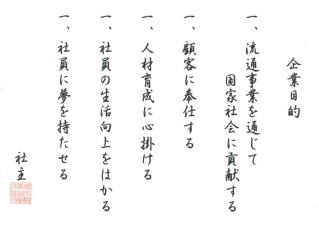 企業目的
一、流通事業を通じて
国家社会に貢献する
一、顧客に奉仕する
一、人材育成に心掛ける
一、社員の生活向上をはかる
一、社員に夢を持たせる
社主